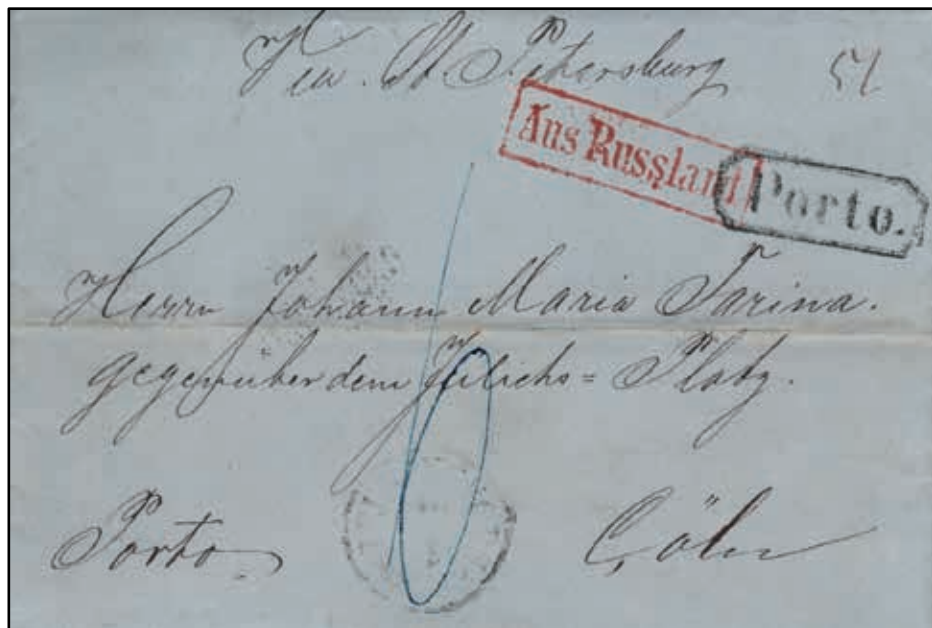 Via. St. Petersburg
51
Aus Russland
Porto.
Herrn Johann Maria Farina.
gegenüber dem Jülichs = Platz.
Porto
Cöln